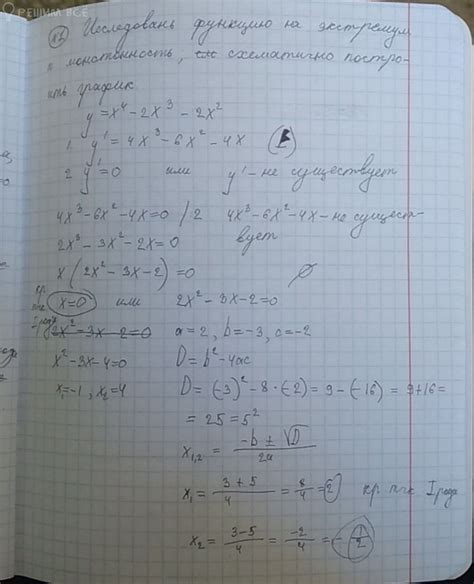 РЕШИМ ВСЁ
Исследовать функцию на экстремум
и монотонность, схематично постро-
ить график
y = x⁴ - 2x³ - 2x²
1 y' = 4x³ - 6x² - 4x
2 y' = 0 или y' - не существует
4x³ - 6x² - 4x = 0 / 2 4x³ - 6x² - 4x - не сущест-
2x³ - 3x² - 2x = 0 вует
x(2x² - 3x - 2) = 0 ∅
кр. тчк x = 0 или 2x² - 3x - 2 = 0
2x² - 3x - 2 = 0 a = 2, b = -3, c = -2
x² - 3x - 4 = 0 D = b² - 4ac
x₁ = -1, x₂ = 4 D = (-3)² - 8·(-2) = 9 - (-16) = 9 + 16 =
= 25 = 5²
x₁,₂ = (-b ± √D)/2a
x₁ = (3 + 5)/4 = 8/4 = 2 кр. тчк I рода
x₂ = (3 - 5)/4 = -2/4 = -1/2